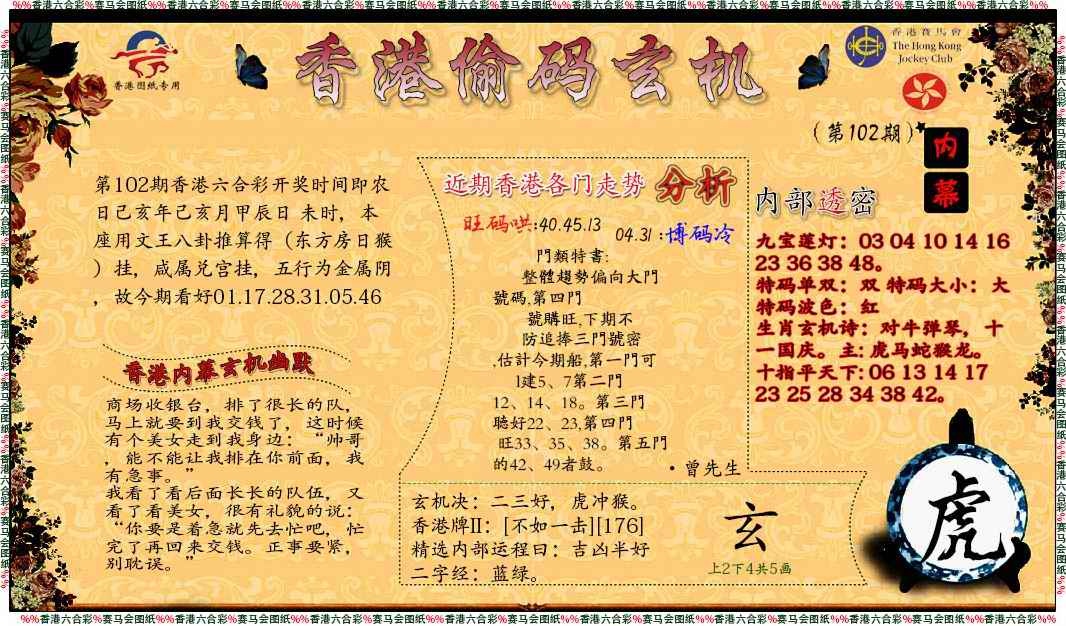 %%香港六合彩%赛马会图纸%%香港六合彩%赛马会图纸%%香港六合彩%赛马会图纸%%香港六合彩%赛马会图纸%%香港六合彩%赛马会图纸%%香港六合彩%赛马会图纸%%香港六合彩%赛马会图纸%%
香港图纸专用
香港偷码玄机
香港賽馬會
The Hong Kong
Jockey Club
(第102期)
内
幕
第102期香港六合彩开奖时间即农
日己亥年己亥月甲辰日 未时，本
座用文王八卦推算得（东方房日猴
）挂，咸属兑宫挂，五行为金属阴
，故今期看好01.17.28.31.05.46
香港内幕玄机幽默
商场收银台，排了很长的队，
马上就要到我交钱了，这时候
有个美女走到我身边：“帅哥
，能不能让我排在你前面，我
有急事。”
我看了看后面长长的队伍，又
看了看美女，很有礼貌的说：
“你要是着急就先去忙吧，忙
完了再回来交钱。正事要紧，
别耽误。”
近期香港各门走势 分析
旺码哄:40.45.13
04.31 :博码冷
門類特書:
整體趨勢偏向大門
號碼,第四門
號購旺,下期不
防追捧三門號密
,估計今期船,第一門可
1建5、7第二門
12、14、18。第三門
聽好22、23,第四門
旺33、35、38。第五門
的42、49者鼓。
·曾先生
玄机决：二三好，虎冲猴。
香港牌II：[不如一击][176]
精选内部运程曰：吉凶半好
二字经：蓝绿。
玄
上2下4共5画
内部透密
九宝莲灯：03 04 10 14 16
23 36 38 48。
特码单双：双 特码大小：大
特码波色：红
生肖玄机诗：对牛弹琴，十
一国庆。主: 虎马蛇猴龙。
十指平天下: 06 13 14 17
23 25 28 34 38 42。
虎
%%香港六合彩%赛马会图纸%%香港六合彩%赛马会图纸%%香港六合彩%赛马会图纸%%香港六合彩%赛马会图纸%%香港六合彩%赛马会图纸%%香港六合彩%赛马会图纸%%香港六合彩%赛马会图纸%%